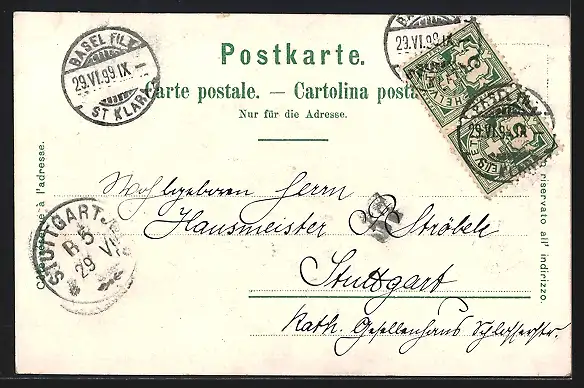 BASEL FIL.
29.VI.99.IX
ST KLARA
BASEL FIL.
29.VI.99.IX
Postkarte.
Carte postale. — Cartolina posta
Nur für die Adresse.
HELVETIA
BASEL FIL.
29.VI.99.IX
STUTTGART
B 5
29 VI
Côté réservé à l'adresse.
riservato all' indirizzo.
Wohlgeboren Herrn
Hausmeister Ströbele
Stuttgart
Kath. Gesellenhaus Schlosserstr.